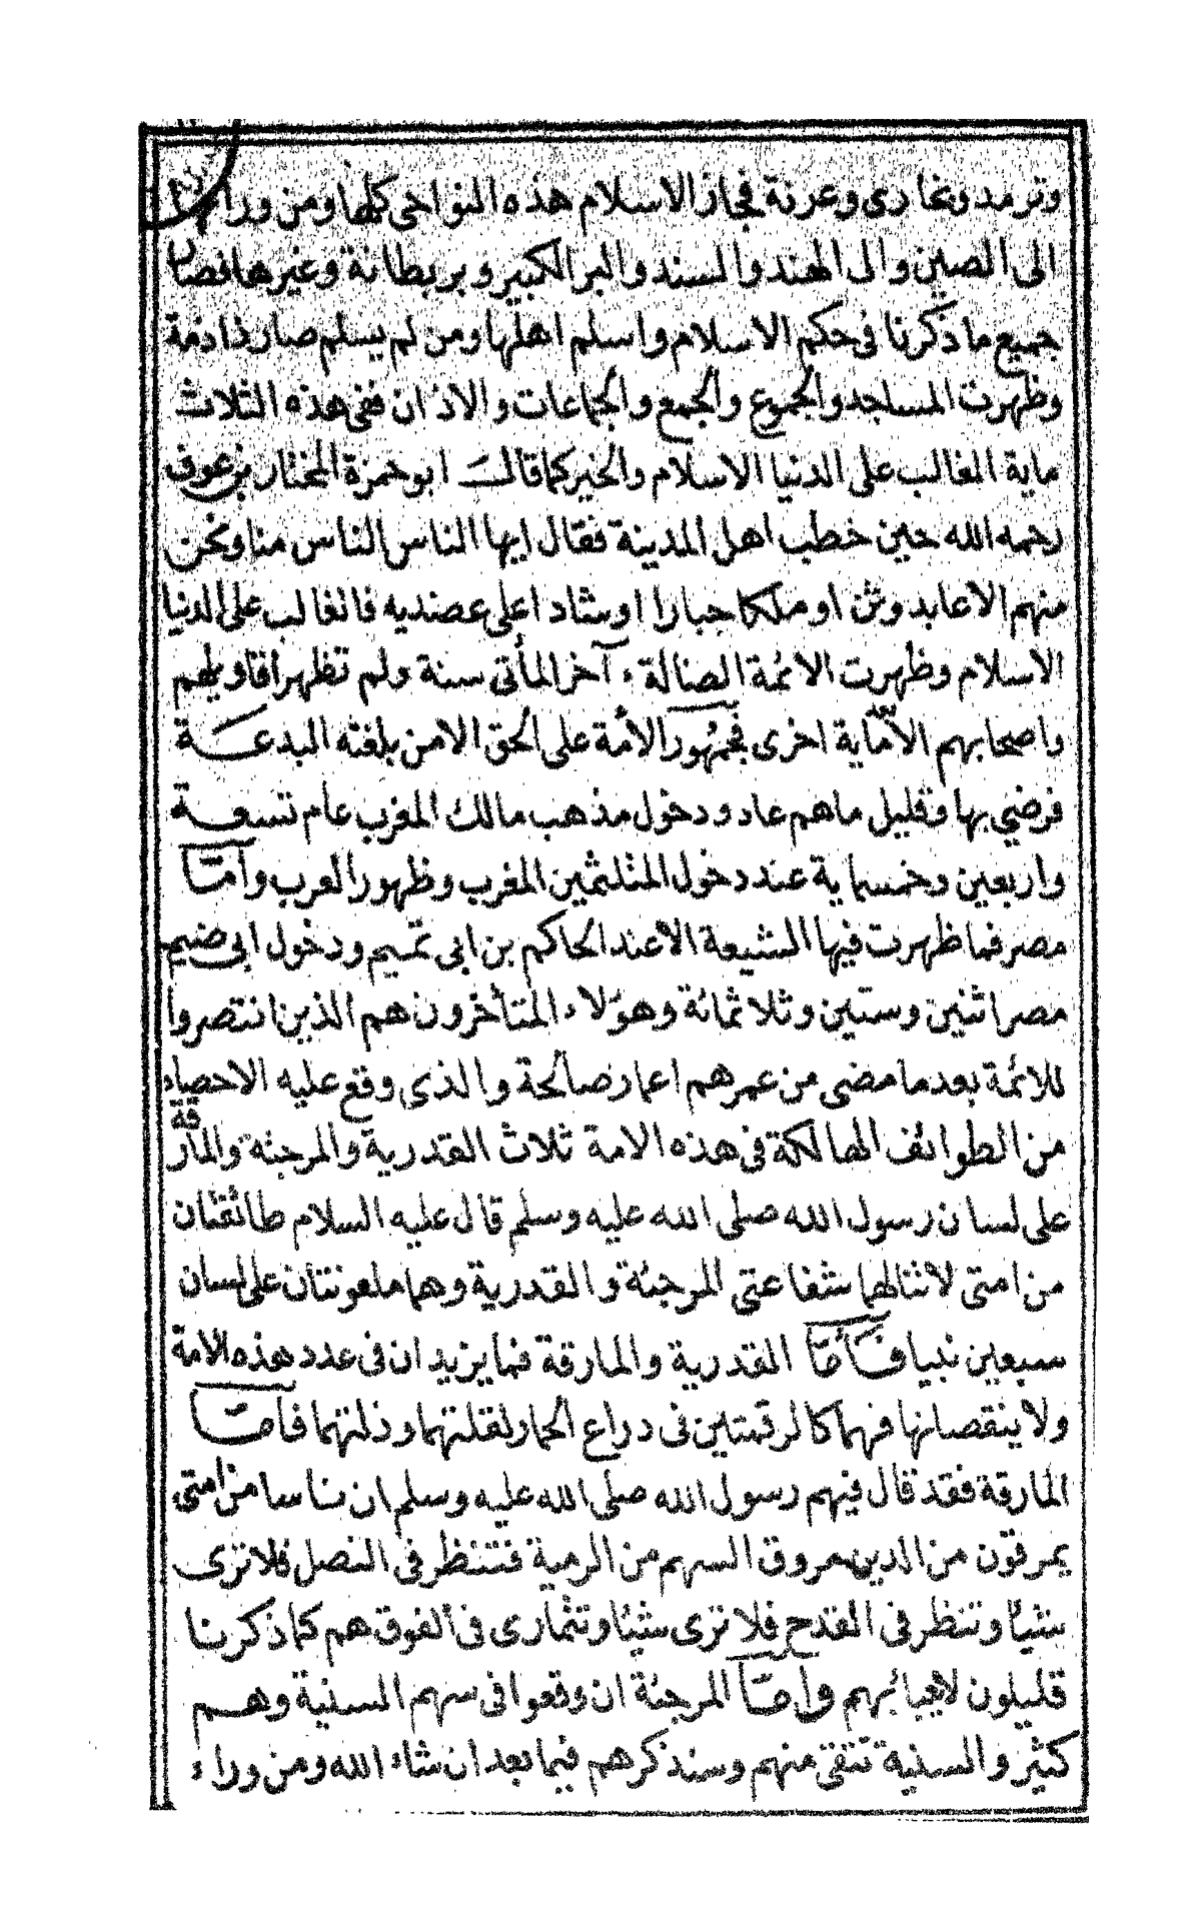 وترمد وبخارى وغزنة فجاز الاسلام هذه النواحي كلها ومن ورائها
الى الصين والى الهند والسند والبر الكبير وبربطانة وغيرها فصار
جميع ما ذكرنا في حكم الاسلام واسلم اهلها ومن لم يسلم صار ذا ذمة
وظهرت المساجد والجموع والجمع والجماعات والاذان ففي هذه الثلاث
ماية الغالب على الدنيا الاسلام والخير كما قالـــ ابو حمزة المختار بن عوف
رحمه الله حين خطب اهل المدينة فقال ايها الناس الناس منا ونحن
منهم الا عابد وثن او ملكا جبارا او شادا على عضديه فالغالب على الدنيا
الاسلام وظهرت الائمة الضالة ء آخر المأتي سنة ولم تظهر اقاويلهم
واصحابهم الا ماية اخرى فجمهور الأمة على الحق الا من بلغته البدعـة
فرضي بها وقليل ما هم عاد ودخول مذهب مالك المغرب عام تسعـة
واربعين وخمسماية عند دخول المتلثمين المغرب وظهور العرب وأمّـا
مصر فما ظهرت فيها الشيعة الا عند الحاكم بن ابي تميم ودخول ابي ضيم
مصر اثنين وستين وثلاثمائة وهؤلاء المتأخرون هم الذين انتصروا
للائمة بعد ما مضى من عمرهم اعمار صالحة والذى وقع عليه الاحصاء
من الطوائف الهالكة في هذه الامة ثلاث القدرية والمرجئة والمارقة
على لسان رسول الله صلى الله عليه وسلم قال عليه السلام طائفتان
من امتى لا تنالهما شفاعتى المرجئة والقدرية وهما ملعونتان على لسان
سبعين نبيا فـأمّا القدرية والمارقة فما يزيد ان في عدد هذه الامة
ولا ينقصانها فهما كالرقمتين في دراع الحمار لقلتهما وذلتهما فامّـا
المارقة فقد قال فيهم رسول الله صلى الله عليه وسلم ان نـاسا من امتى
يمرقون من الدين مروق السهم من الرمية فتنظر في النصل فلا ترى
شيئا وتنظر في القدح فلا ترى شيئا وتتمارى في الفوق هم كما ذكرنـا
قليلون وأمّـا المرجئة ان وقعوا في سهم السنية وهـم
كثير والسنية تنتفي منهم وسنذكرهم فيما بعد ان شاء الله ومن وراء